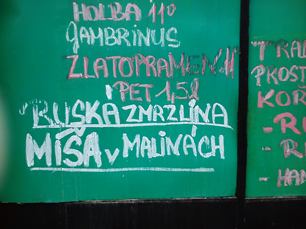 HOLBA 11°
GAMBRINUS
ZLATOPRAMEN 11°
PET 1,5l
RUSKÁ ZMRZLINA
MÍŠA v MALINÁCH
PROST